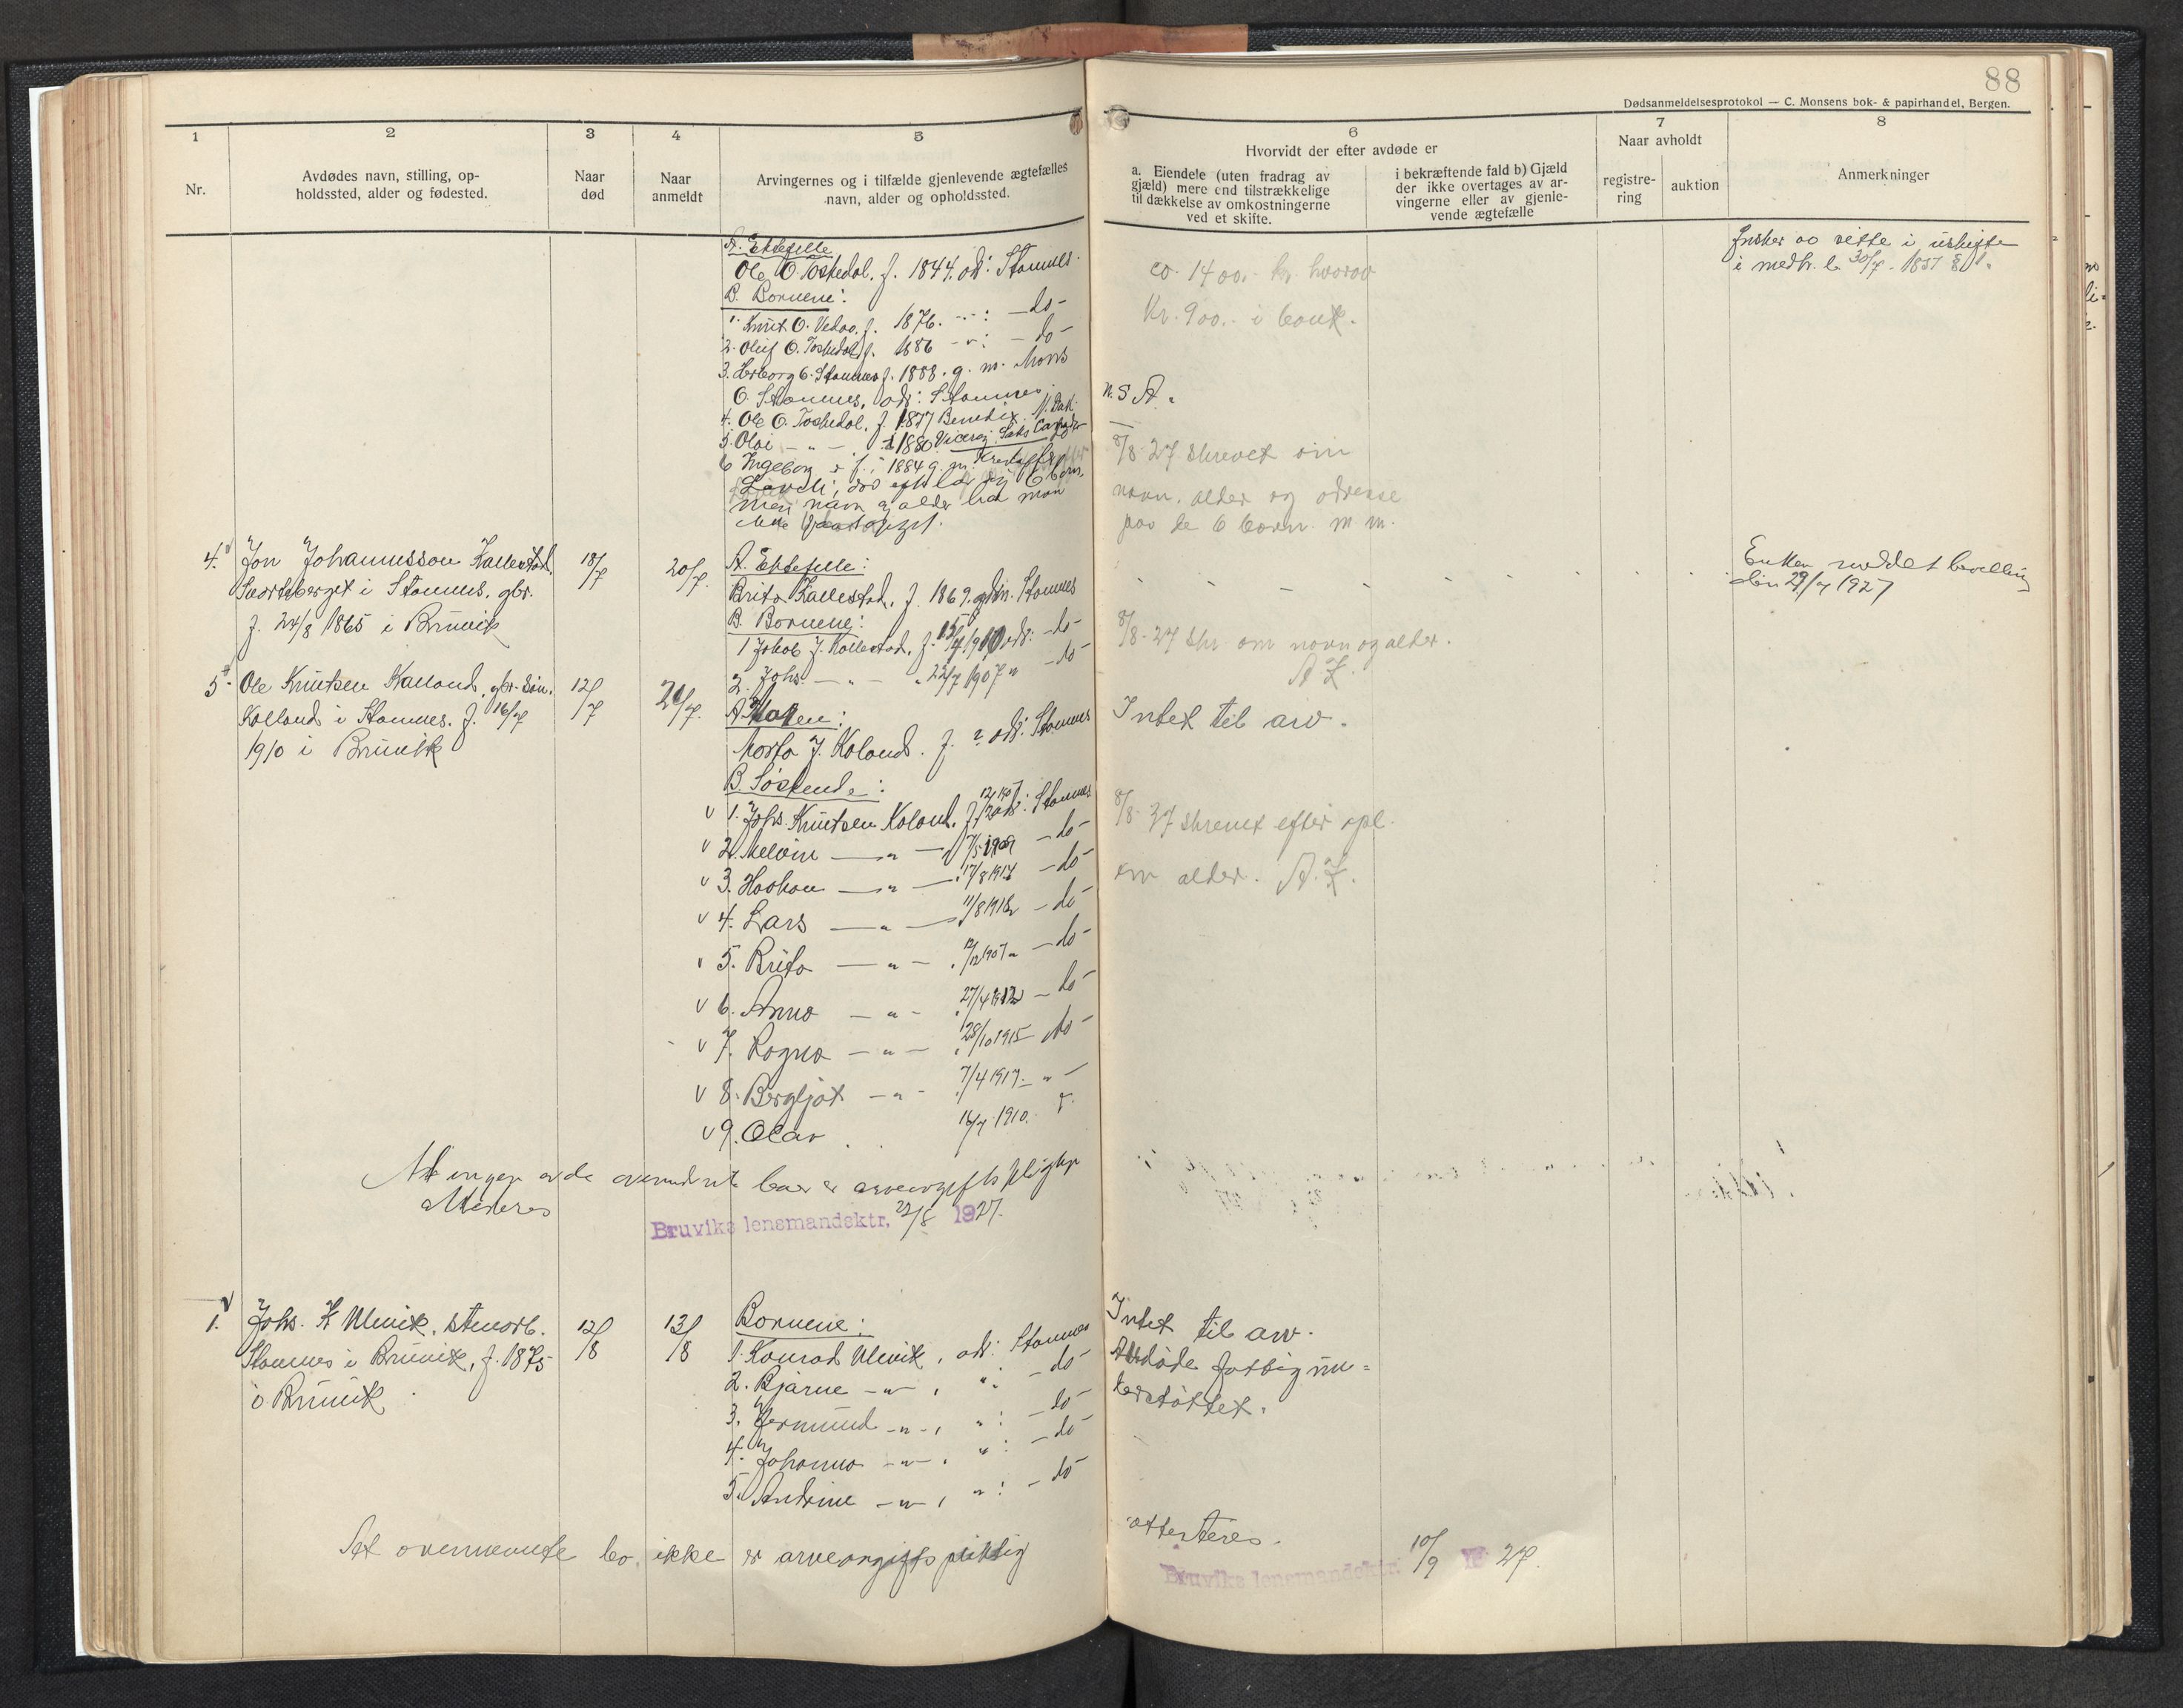 88
Dødsanmeldelsesprotokol — C. Monsens bok- & papirhandel, Bergen.
1
2
3
4
5
6
7
8
Nr.
Avdødes navn, stilling, op-
holdssted, alder og fødested.
Naar
død
Naar
anmeldt
Arvingernes og i tilfælde gjenlevende ægtefælles
navn, alder og opholdssted.
Hvorvidt der efter avdøde er
a. Eiendele (uten fradrag av
gjæld) mere end tilstrækkelige
til dækkelse av omkostningerne
ved et skifte.
i bekræftende fald b) Gjæld
der ikke overtages av ar-
vingerne eller av gjenle-
vende ægtefælle
Naar avholdt
registre-
ring
auktion
Anmerkninger
A. Ektefelle
Ole O. Toskedal. f. 1844. adr: Stamnes.
B. Bornene:
1. Knut O. f. 1876. - " : - do -
2. Oluf O. Toskedal f. 1886 - " : - do -
3. Herborg O. Stamnes f. 1888. g. m. Mons
O. Stamnes, adr: Stamnes.
4. Ole O. Toskedal, f. 1877 Benedix N. Dak.
5. Olai - " - 1880
6 Ingeborg " f. 1884 g. m.
død 6 born,
men navn og alder har man
ikke
ca. 1400.- kr. hvorav
kr. 900.- i bank.
i uskifte
i medh. l. 30/7 - 1851 § 1.
N. S. A.
8/8-27 skrevet om
navn, alder og adresse
paa de 6 born m m.
4. Jon Johannesson Kallestad,
Svartaberget i Stamnes, gbr.
f. 24/8 1865 i Bruvik
18/7
20/7.
A. Ektefelle:
Brita Kallestad, f. 1869. Stamnes
B. Bornene:
1 Jakob J. Kallestad, f. 1910 adr: - do -
2. Johs. - " - " 22/7 1907 " - do -
8/8-27 skr om navn og alder.
A Z.
Enken meddelt bevilling
den 29/7 1927
5. Ole Knutsen Kalland, gbr. søn.
Kalland i Stamnes. f. 16/7
1910 i Bruvik
12/7
21/7.
A. Moren:
Marta J. Kaland. f. ? adr: Stamnes
B. Søskende:
v 1. Johs. Knutsen Kaland, f. adr: Stamnes
v 2. Melvin - " - 1909 - do -
v 3. Haakon - " - 17/8 1917 - do -
v 4. Lars - " - 11/8 - do -
v 5. Brita - " - 12/12 1907 " - do -
v 6. Anna - " - 27/4 1912 - do -
v 7. Ragna - " - 28/10 1915 - do -
v 8. Bergljot - " - 7/4 1917 - " -
v 9. Olav 16/7 1910.
Intet til arv.
8/8-27 skrevet efter opl.
om alder. A. Z.
At ingen av de ovennevnte boer er arveavgiftspligtige
attesteres
Bruviks lensmandsktr. 22/8 1927.
1. Johs. K Ulevik, stenarb.
Stamnes i Bruvik, f. 1875
i Bruvik.
12/8
13/8
Bornene:
1. Konrad Ulevik, adr: Stamnes
2. Bjarne - " - , " : - do -
3. Hermund - " - , " : - do -
4. Johanna - " - , " : - do -
5. Andrine - " - , " : - do -
Intet til arv.
Avdøde fattigun=
derstøttet.
At ovennevnte bo ikke er arveavgiftspliktig attesteres.
Bruviks lensmandsktr. 10/9 19 27.